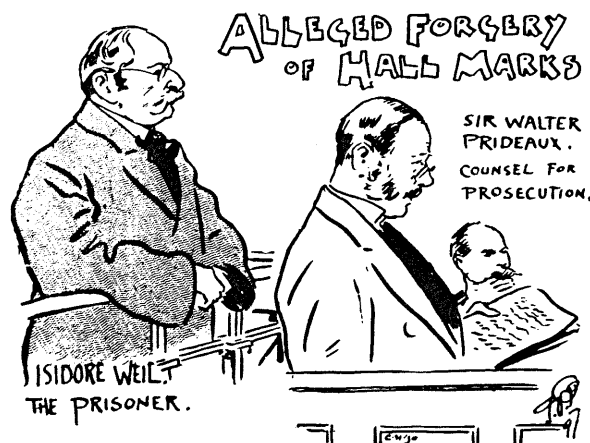 ALLEGED FORGERY
OF HALL MARKS
SIR WALTER
PRIDEAUX.
COUNSEL FOR
PROSECUTION.
ISIDORE WEIL.
THE PRISONER.
97